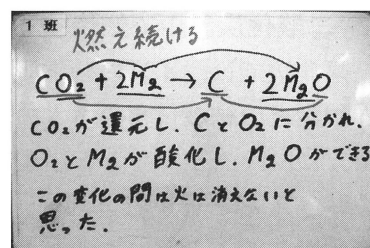 1 班
燃え続ける
CO₂ + 2M₂ → C + 2M₂O
CO₂が還元し、CとO₂に分かれ、
O₂とM₂が酸化し、M₂Oができる
この変化の間は火は消えないと
思った。